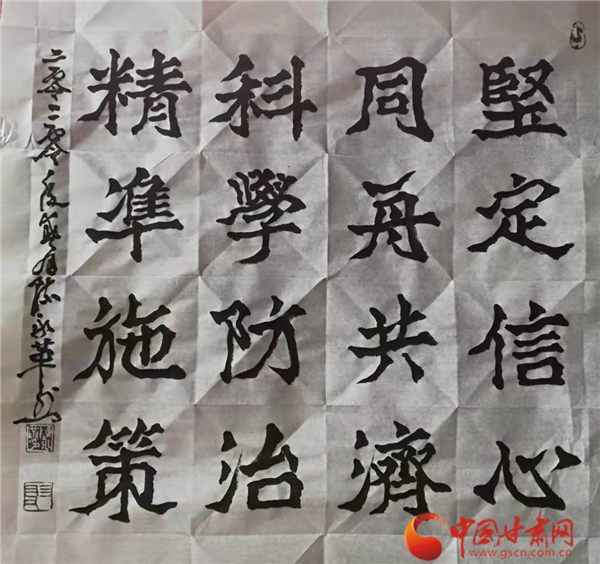 堅定信心
同舟共濟
科學防治
精準施策
二零二零年
中国甘肃网
www.gscn.com.cn